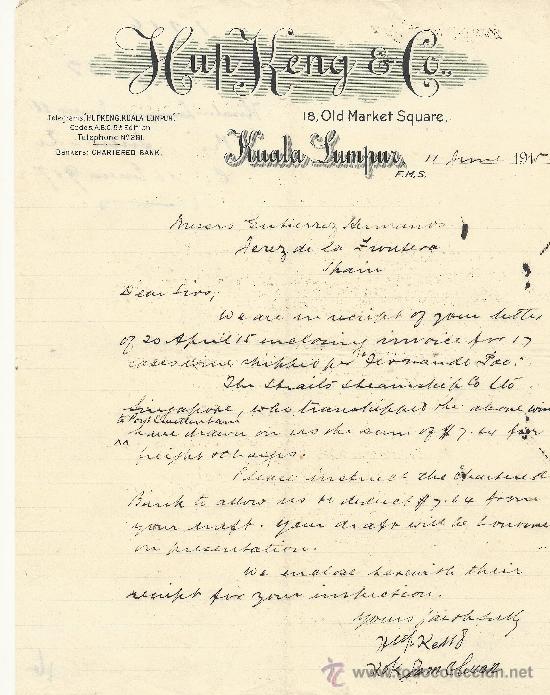 Hup Keng & Co.,
Telegrams, "HUPKENG, KUALA LUMPUR."
Codes, A.B.C. 5th Edition
Telephone No 281.
Bankers: CHARTERED BANK.
18, Old Market Square,
Kuala Lumpur,
F.M.S.
11 June 1915
Messrs Gutierrez Hermanos
Jerez de la Frontera
Spain
Dear Sirs,
We are in receipt of your letter
of 20 April 15 enclosing invoice for 17
cases wine shipped per "Fernando Poo."
The Straits Steamship Co Ltd
Singapore, who transhipped the above wine
to Port Swettenham
have drawn on us the sum of $7.64 for
freight & charges.
Please instruct the Chartered
Bank to allow us to deduct $7.64 from
your draft. Your draft will be honoured
on presentation.
We enclose herewith their
receipt for your inspection.
Yours faithfully
Hup Keng
todocoleccion.net